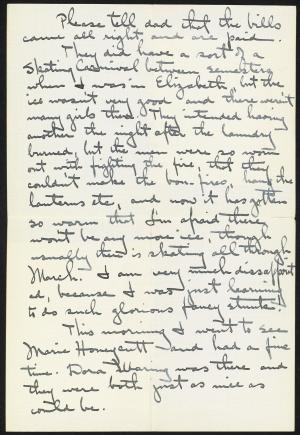 Please tell dad that the bills
came all right and are paid.
They did have a sort of a
Skating Carnival between semesters
when I was in Elizabeth, but the
ice wasn't very good and there weren't
many girls there. They intended having
another the night after the laundry
burned, but the men were so worn
out with fighting the fire, that they
couldn't make the bon-fires, hang the
lanterns etc, and now it has gotten
so warm that I'm afraid there
won't be any more ice, though
usually there is skating all through
March. I am very much disappoint
ed, because I was just learning
to do such glorious fancy stunts!
This morning I went to see
Marie Honeycutt and had a fine
time. Dora Waring was there and
they were both just as nice as
could be.